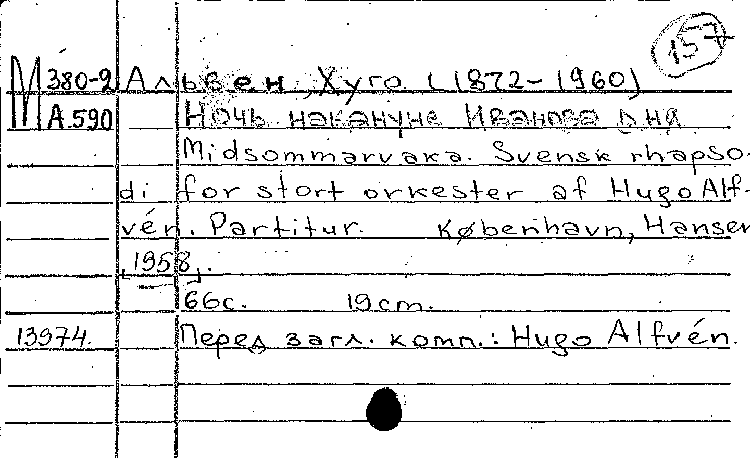 157
М 380-2 Альвен, Хуго (1872-1960)
А.590 Ночь накануне Иванова дня
Midsommarvaka. Svensk rhapso-
di for stort orkester af Hugo Alf-
vén. Partitur. København, Hansen
[1958].
66с. 19cm.
13974. Перед загл. комп.: Hugo Alfvén.